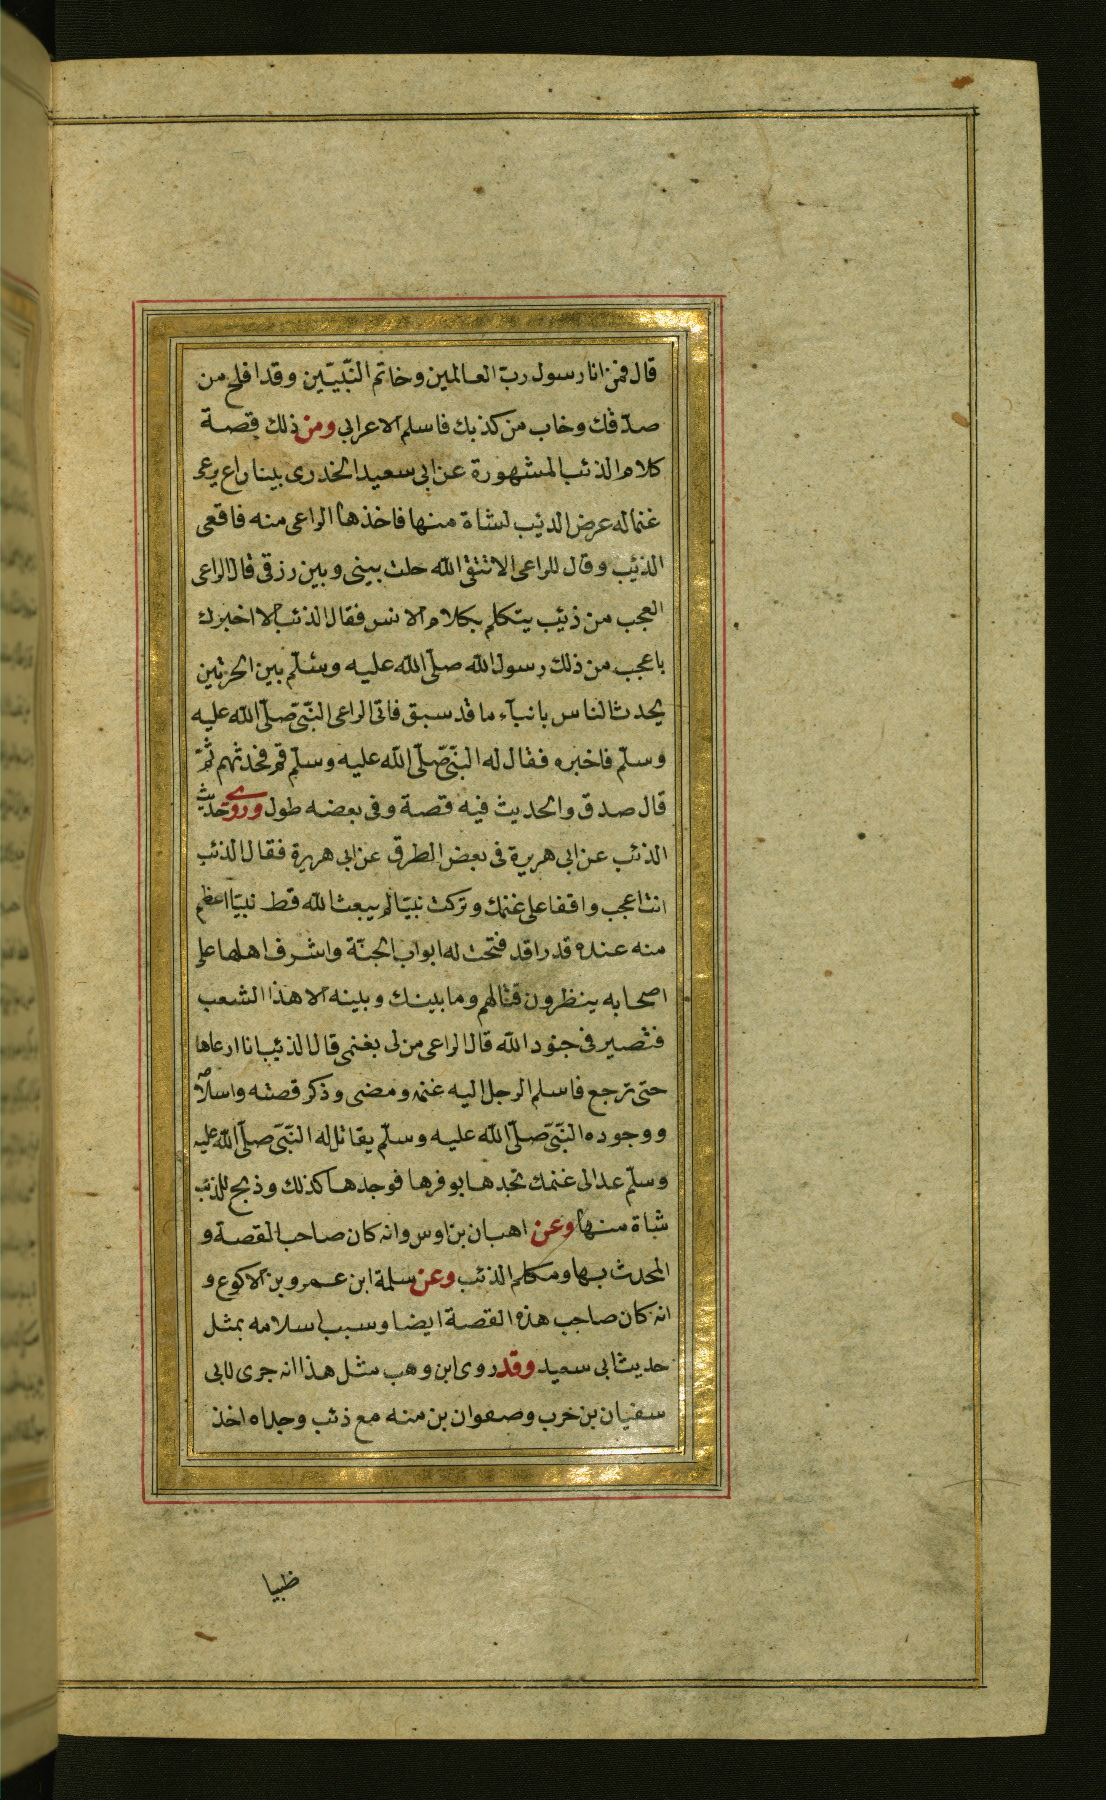 قال فمن انا رسول ربّ العالمين وخاتم النّبيّين وقد افلح من
صدّقك وخاب من كذبك فاسلم الاعرابي ومن ذلك قصة
كلام الذئب المشهورة عن ابي سعيد الخدرى بينا راع يرعى
غنما له عرض الذيب لشاة منها فاخذها الراعى منه فاقعى
الذئيب وقال للراعى الا تتقى الله حلت بينى وبين رزقى قال الراعى
العجب من ذئيب يتكلم بكلام الانس فقال الذئب الا اخبرك
باعجب من ذلك رسول الله صلّى الله عليه وسلّم بين الحرتين
يحدث الناس بانبآء ما قد سبق فاتى الراعى النّبىّ صلّى الله عليه
وسلّم فاخبره فقال له النّبىّ صلّى الله عليه وسلّم قم فحدثهم ثمّ
قال صدق والحديث فيه قصة وفى بعضه طول وروى حديث
الذئب عن ابى هريرة فى بعض الطرق عن ابى هريرة فقال الذئب
انت اعجب واقفا على غنمك وتركت نبيّا لم يبعث الله قط نبيّا اعظم
منه عنده قدرا قد فتحت له ابواب الجنّة واشرف اهلها على
اصحابه ينظرون قتالهم وما بينك وبينه الا هذا الشعب
فتصير فى جنود الله قال الراعى من لى بغنمى قال الذئيب انا ارعاها
حتى ترجع فاسلم الرجل اليه غنمه ومضى وذكر قصته واسلامه
ووجوده النّبىّ صلّى الله عليه وسلّم يقاتل له النّبىّ صلّى الله عليه
وسلّم عد الى غنمك تجدها بوفرها فوجدها كذلك وذبح للذئب
شاة منها وعن اهبان بن اوس وانه كان صاحب القصة و
المحدث بها ومكلم الذئب وعن سلمة ابن عمرو بن الاكوع و
انه كان صاحب هذه القصة ايضا وسبب اسلامه بمثل
حديث ابى سعيد وقد روى ابن وهب مثل هذا انه جرى لابى
سفيان بن خرب وصفوان بن منه مع ذئب وجداه اخذ
ظبيا